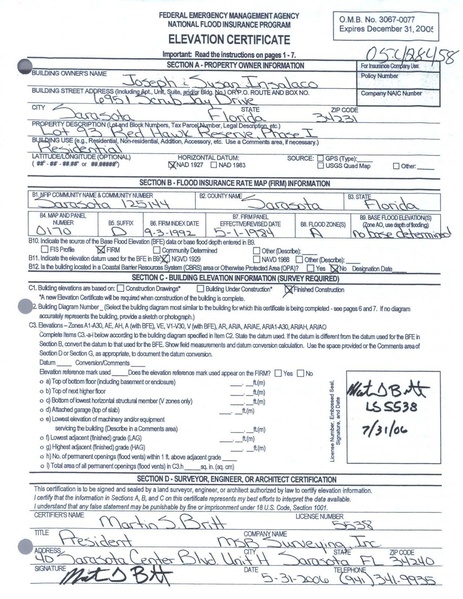 FEDERAL EMERGENCY MANAGEMENT AGENCY
NATIONAL FLOOD INSURANCE PROGRAM
ELEVATION CERTIFICATE
O.M.B. No. 3067-0077
Expires December 31, 2005
Important: Read the instructions on pages 1 - 7.
SECTION A - PROPERTY OWNER INFORMATION
For Insurance Company Use:
BUILDING OWNER'S NAME
Joseph & Susan Insalaco
Policy Number
BUILDING STREET ADDRESS (Including Apt., Unit, Suite, and/or Bldg. No.) OR P.O. ROUTE AND BOX NO.
6951 Scrub Jay Drive
Company NAIC Number
CITY STATE ZIP CODE
Sarasota Florida 34231
PROPERTY DESCRIPTION (Lot and Block Numbers, Tax Parcel Number, Legal Description, etc.)
Lot 93 Red Hawk Reserve Phase I
BUILDING USE (e.g., Residential, Non-residential, Addition, Accessory, etc. Use a Comments area, if necessary.)
Residential
LATITUDE/LONGITUDE (OPTIONAL) HORIZONTAL DATUM: SOURCE: GPS (Type):
( ##° - ##' - ##.##" or ##.#####°) NAD 1927 NAD 1983 USGS Quad Map Other:
SECTION B - FLOOD INSURANCE RATE MAP (FIRM) INFORMATION
B1. NFIP COMMUNITY NAME & COMMUNITY NUMBER B2. COUNTY NAME B3. STATE
Sarasota 125144 Sarasota Florida
B4. MAP AND PANEL NUMBER B5. SUFFIX B6. FIRM INDEX DATE B7. FIRM PANEL EFFECTIVE/REVISED DATE B8. FLOOD ZONE(S) B9. BASE FLOOD ELEVATION(S) (Zone AO, use depth of flooding)
0170 D 9-3-1992 5-1-1984 A no base determined
B10. Indicate the source of the Base Flood Elevation (BFE) data or base flood depth entered in B9.
FIS Profile FIRM Community Determined Other (Describe):
B11. Indicate the elevation datum used for the BFE in B9: NGVD 1929 NAVD 1988 Other (Describe):
B12. Is the building located in a Coastal Barrier Resources System (CBRS) area or Otherwise Protected Area (OPA)? Yes No Designation Date
SECTION C - BUILDING ELEVATION INFORMATION (SURVEY REQUIRED)
C1. Building elevations are based on: Construction Drawings* Building Under Construction* Finished Construction
*A new Elevation Certificate will be required when construction of the building is complete.
C2. Building Diagram Number (Select the building diagram most similar to the building for which this certificate is being completed - see pages 6 and 7. If no diagram
accurately represents the building, provide a sketch or photograph.)
C3. Elevations – Zones A1-A30, AE, AH, A (with BFE), VE, V1-V30, V (with BFE), AR, AR/A, AR/AE, AR/A1-A30, AR/AH, AR/AO
Complete Items C3.-a-i below according to the building diagram specified in Item C2. State the datum used. If the datum is different from the datum used for the BFE in
Section B, convert the datum to that used for the BFE. Show field measurements and datum conversion calculation. Use the space provided or the Comments area of
Section D or Section G, as appropriate, to document the datum conversion.
Datum Conversion/Comments
Elevation reference mark used Does the elevation reference mark used appear on the FIRM? Yes No
o a) Top of bottom floor (including basement or enclosure) ft.(m)
o b) Top of next higher floor ft.(m)
o c) Bottom of lowest horizontal structural member (V zones only) ft.(m)
o d) Attached garage (top of slab) ft.(m)
o e) Lowest elevation of machinery and/or equipment
servicing the building (Describe in a Comments area) ft.(m)
o f) Lowest adjacent (finished) grade (LAG) ft.(m)
o g) Highest adjacent (finished) grade (HAG) ft.(m)
o h) No. of permanent openings (flood vents) within 1 ft. above adjacent grade
o i) Total area of all permanent openings (flood vents) in C3.h sq. in. (sq. cm)
License Number, Embossed Seal, Signature, and Date
LS 5538
7/31/06
SECTION D - SURVEYOR, ENGINEER, OR ARCHITECT CERTIFICATION
This certification is to be signed and sealed by a land surveyor, engineer, or architect authorized by law to certify elevation information.
I certify that the information in Sections A, B, and C on this certificate represents my best efforts to interpret the data available.
I understand that any false statement may be punishable by fine or imprisonment under 18 U.S. Code, Section 1001.
CERTIFIER'S NAME LICENSE NUMBER
Martin S. Britt 5538
TITLE COMPANY NAME
President MSB Surveying, Inc
ADDRESS CITY STATE ZIP CODE
40 Sarasota Center Blvd Unit H Sarasota FL 34240
SIGNATURE DATE TELEPHONE
5-31-2006 (941) 341-9935